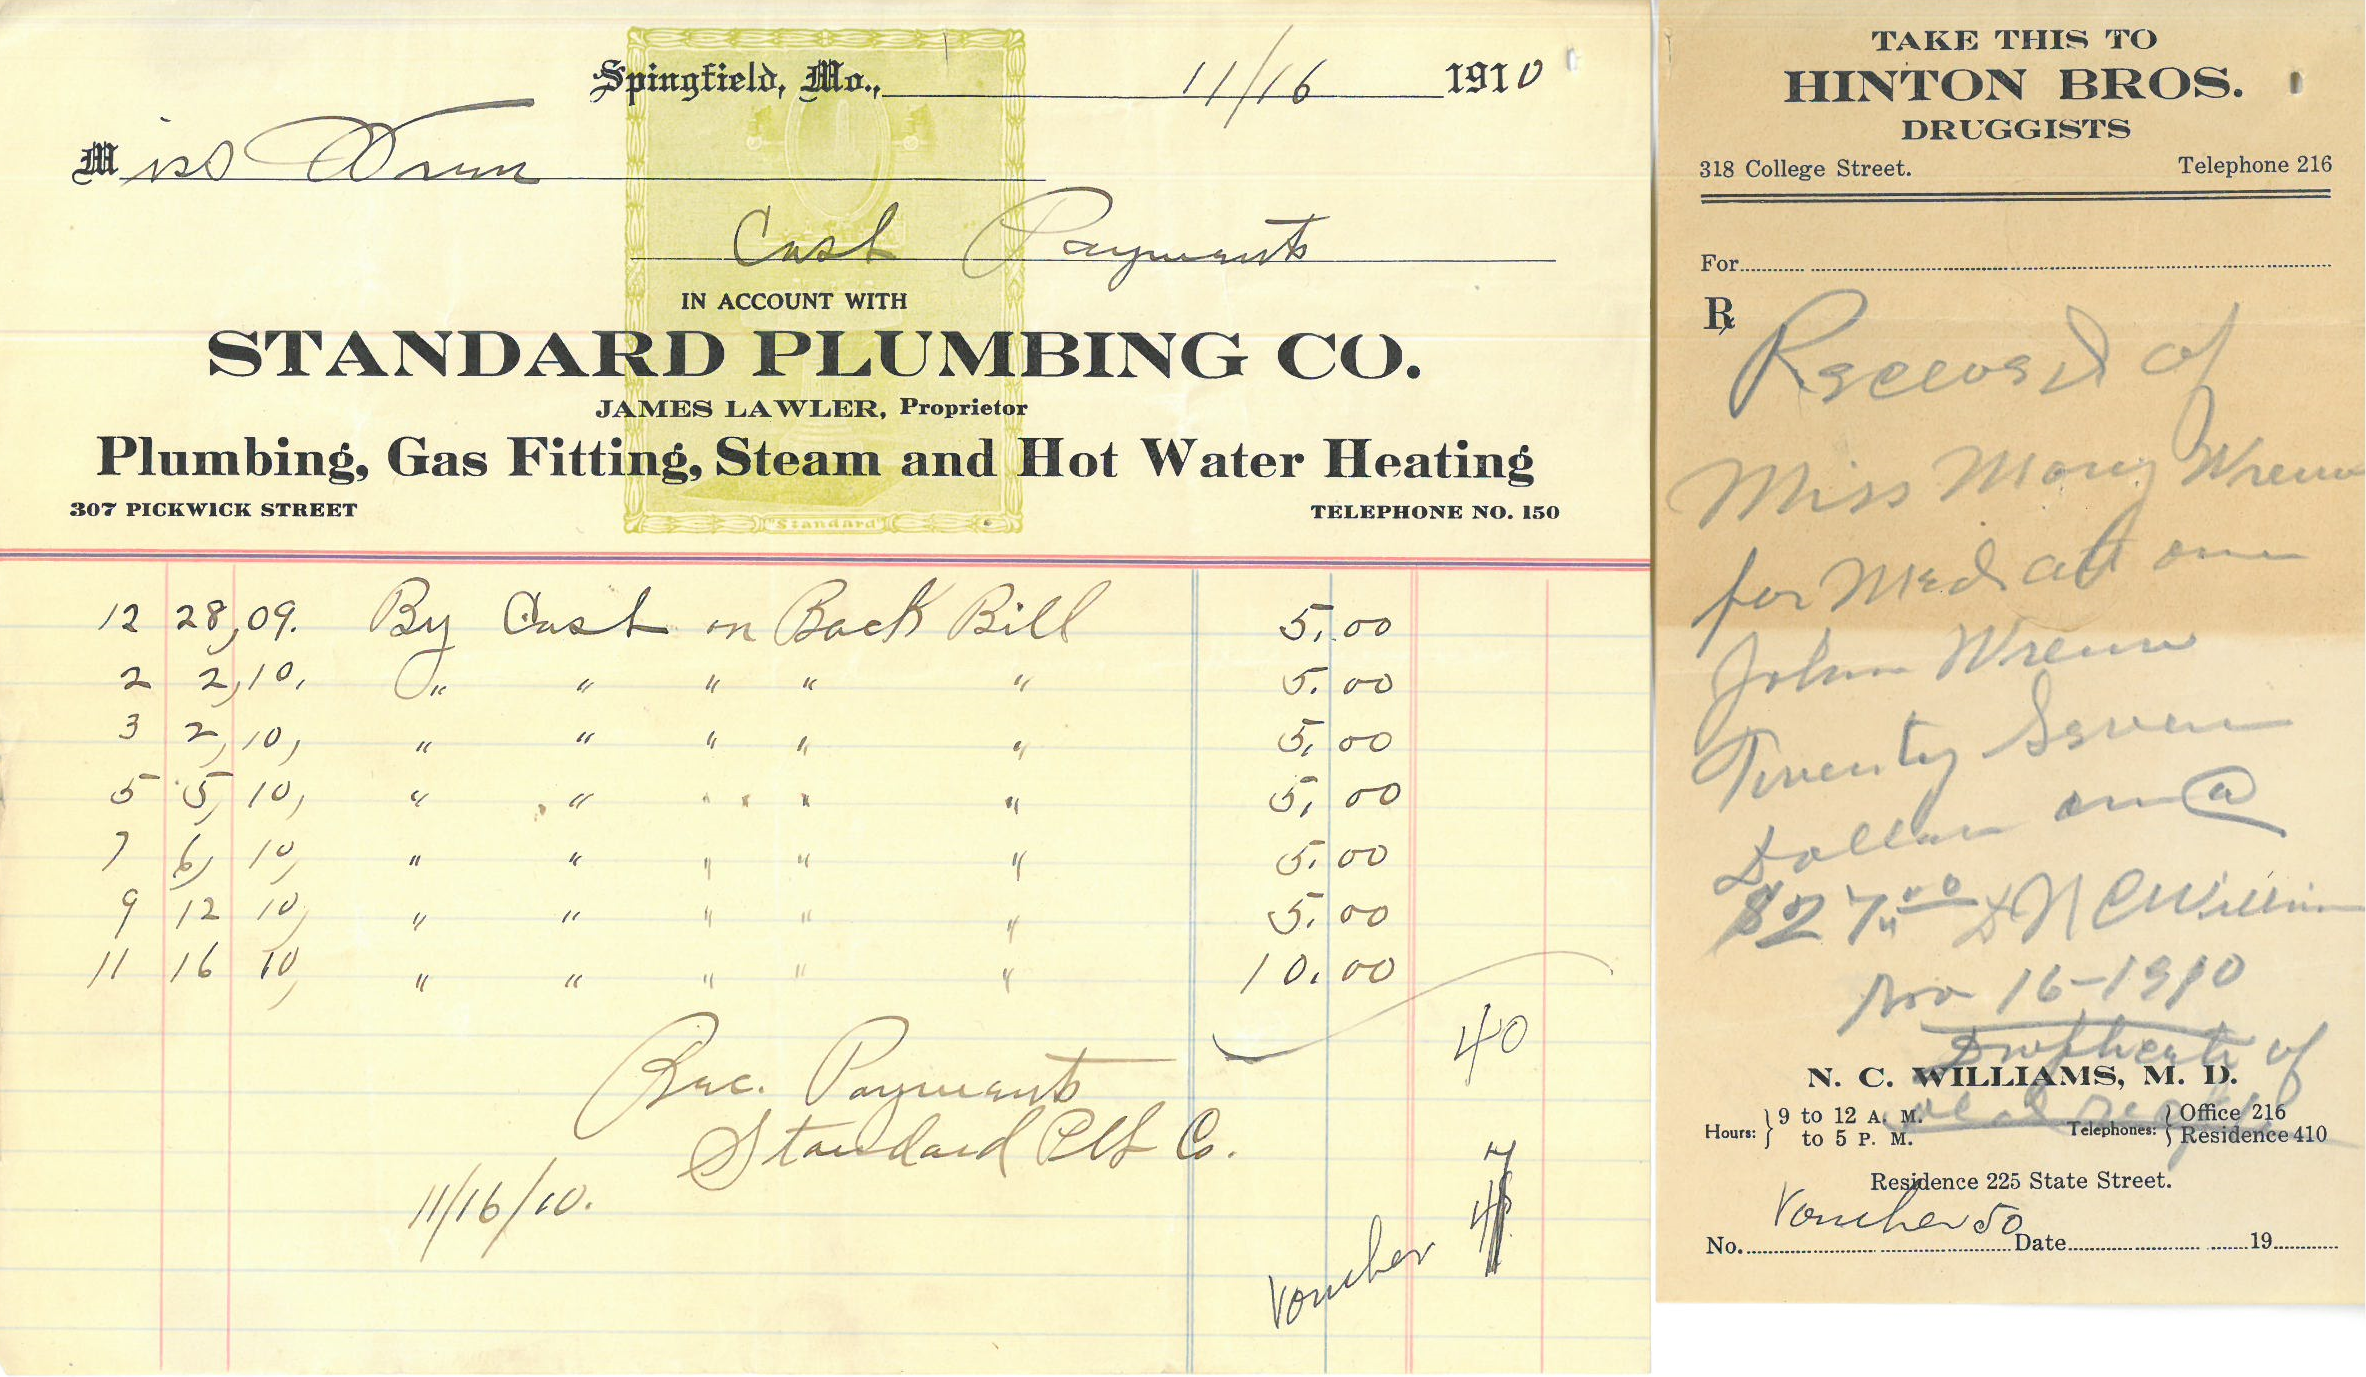 Spingfield, Mo., 11/16 1910
Miss Wrenn
Cash Payments
IN ACCOUNT WITH
STANDARD PLUMBING CO.
JAMES LAWLER, Proprietor
Plumbing, Gas Fitting, Steam and Hot Water Heating
307 PICKWICK STREET TELEPHONE NO. 150
"Standard"
12 28, 09. By Cash on Back Bill 5.00
2 2, 10, " " " " " 5.00
3 2, 10, " " " " " 5.00
5 5, 10, " " " " " 5.00
7 6, 10, " " " " " 5.00
9 12 10, " " " " " 5.00
11 16 10, " " " " " 10.00
40
Rec. Payments
Standard Plb Co.
11/16/10.
Voucher
TAKE THIS TO
HINTON BROS.
DRUGGISTS
318 College Street. Telephone 216
For
℞
Received of
Miss Mary Wrenn
for Med att on
John Wrenn
Twenty Seven
Dollars on a/
$27.00 Dr N C Williams
Nov 16-1910
Duplicate of
N. C. WILLIAMS, M. D.
Hours: 9 to 12 A. M. to 5 P. M. Telephones: Office 216 Residence 410
Residence 225 State Street.
Voucher 50
No. Date 19